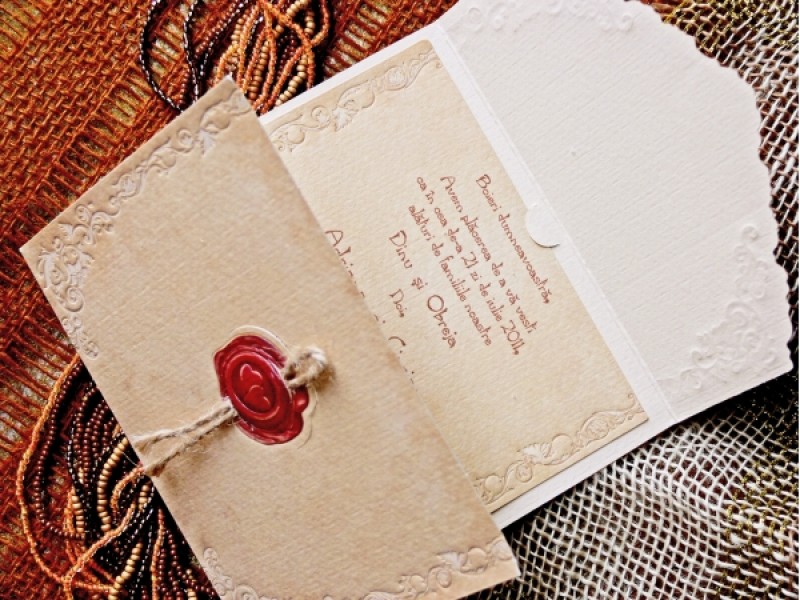 Boieri dumneavoastră,
Avem plăcerea de a vă vesti
ca în cea de-a 21 zi de iulie 2011,
alături de familiile noastre
Dinu și Obreja
Noi,